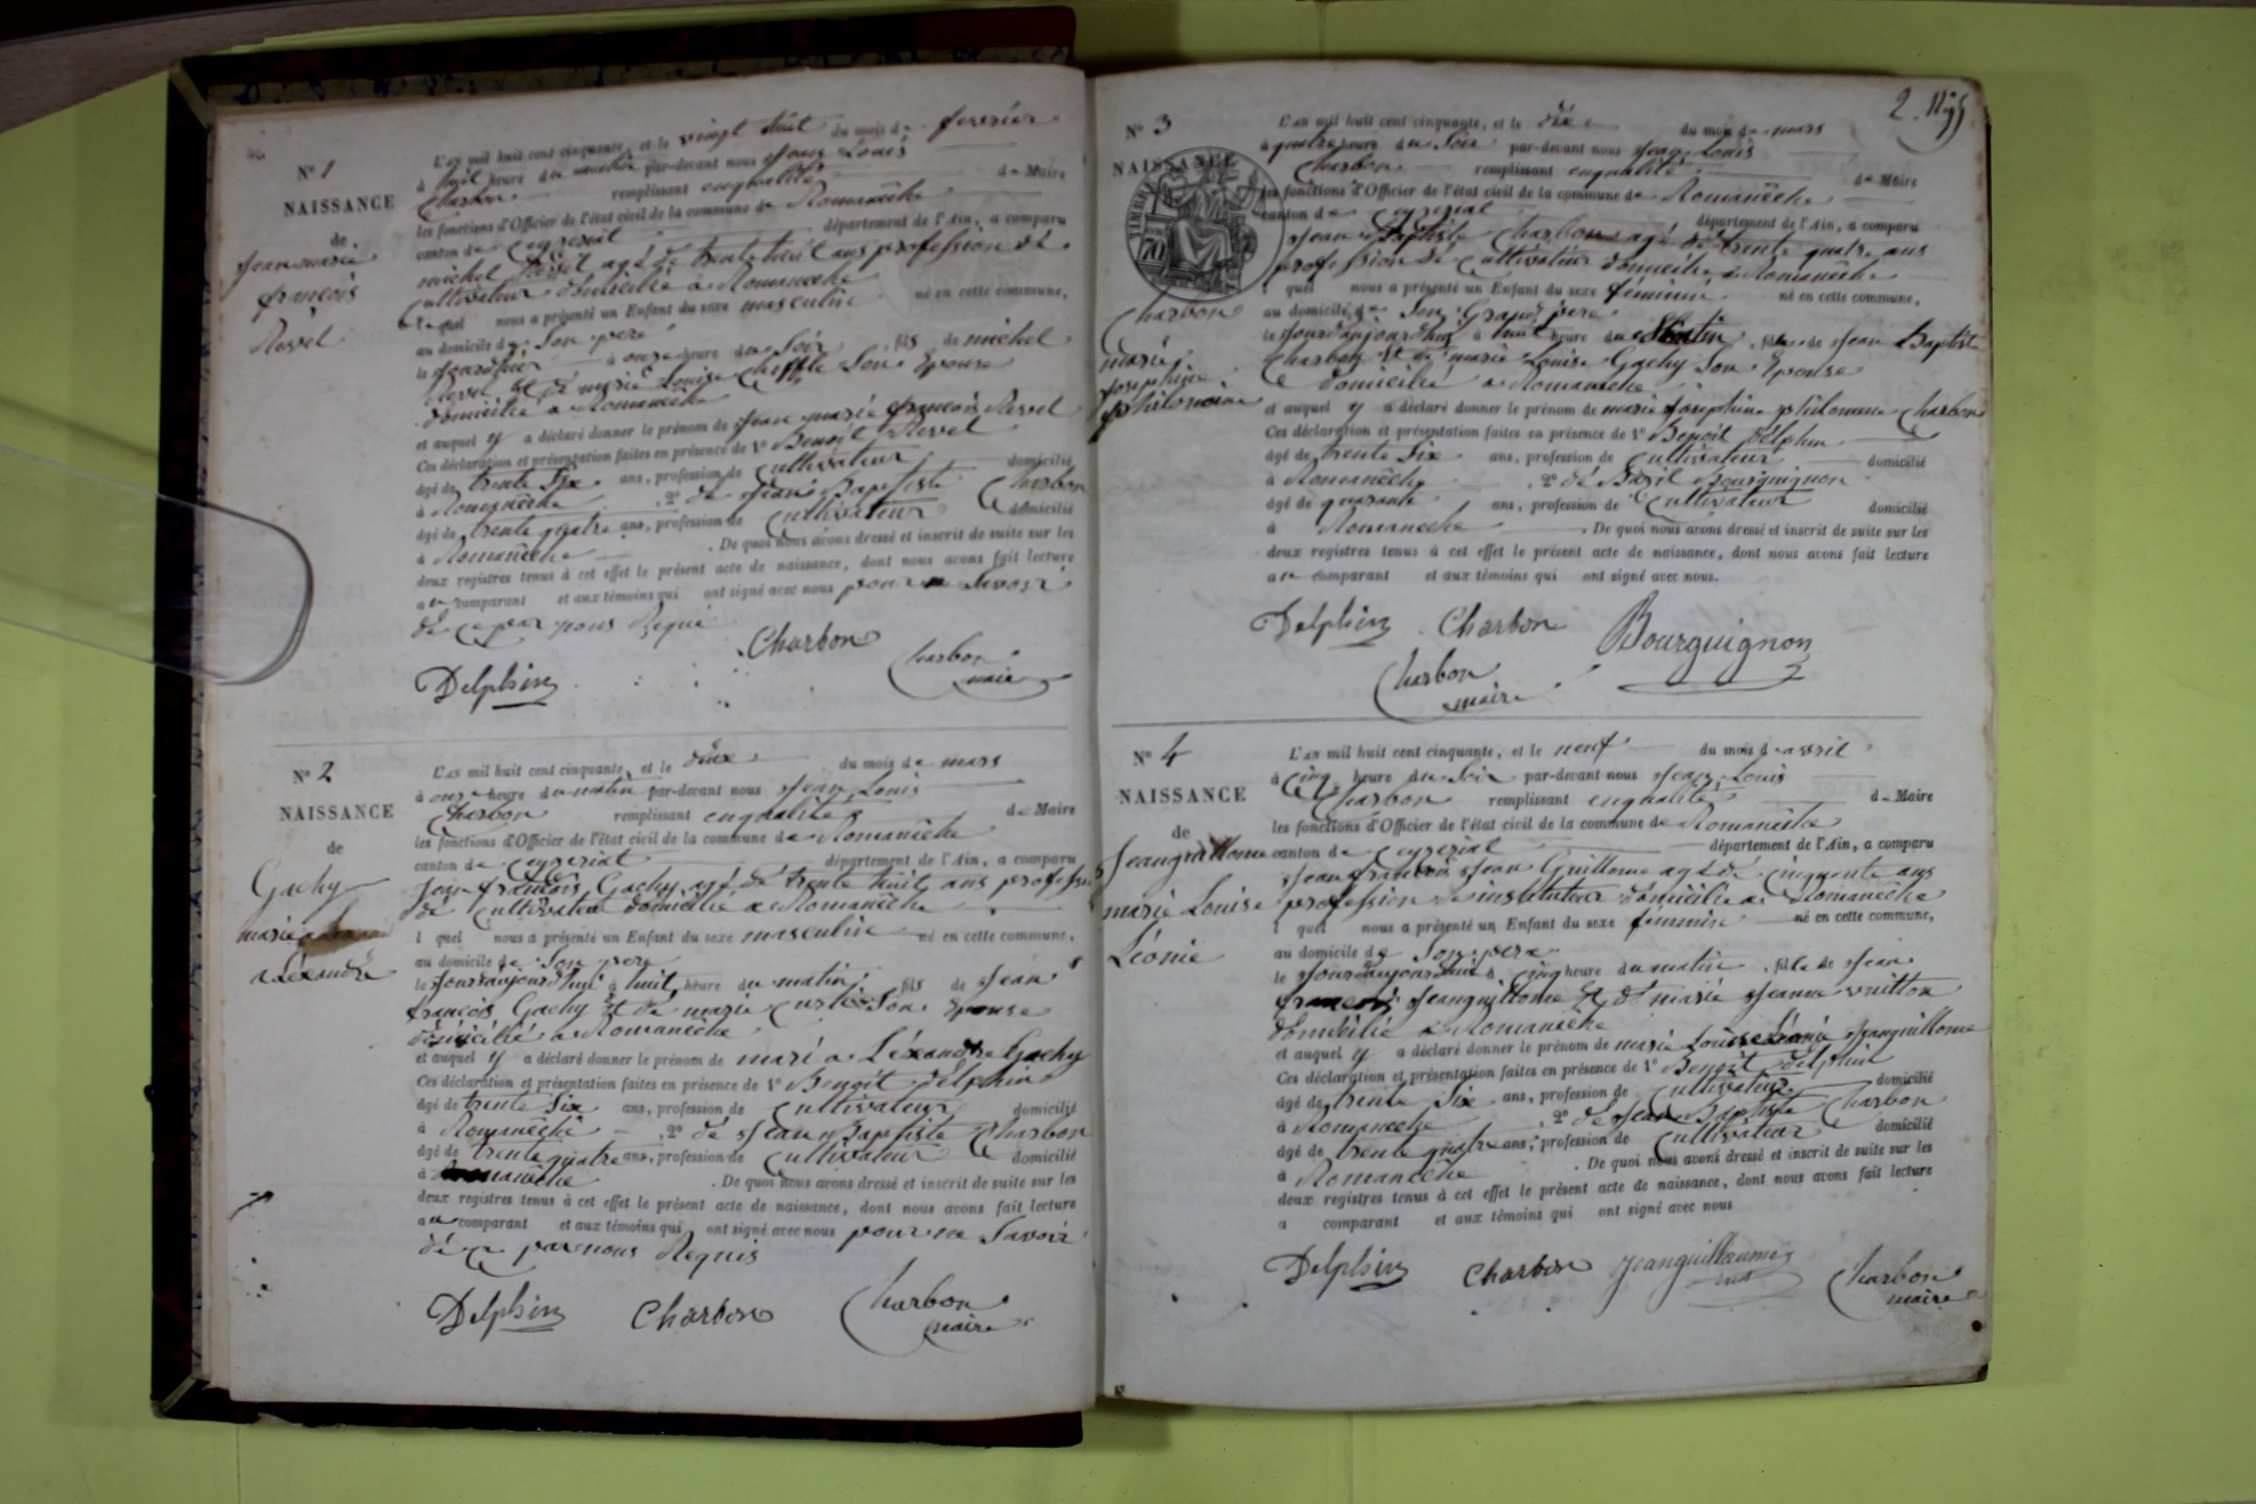 N° 1
NAISSANCE
de
Jean marie
françois
Revel
L'AN mil huit cent cinquante, et le vingt huit du mois de fevrier
à huit heure du matin par-devant nous Jean Louis
Charbon remplissant enqualité de Maire
les fonctions d'Officier de l'état civil de la commune de Romanêche
canton de Ceyzeriat département de l'Ain, a comparu
michel Revel agé de trente huit ans profession dé
Cultivateur domicilié a Romanêche
lequel nous a présenté un Enfant du sexe masculin né en cette commune,
au domicile de Son pere
le Jour d'hier à onze heure du Soir, fils de michel
Revel et dé marie Louise Son Epouse
domicilié a Romanêche
et auquel y a déclaré donner le prénom de Jean marie françois Revel
Ces déclaration et présentation faites en présence de 1° Benoit Revel
âgé de trente Six ans, profession de Cultivateur domicilié
à Romanêche, 2° de Jean Baptiste Charbon
âgé de trente quatre ans, profession de Cultivateur domicilié
à Romanêche. De quoi nous avons dressé et inscrit de suite sur les
deux registres tenus à cet effet le présent acte de naissance, dont nous avons fait lecture
au comparant et aux témoins qui ont signé avec nous pour ne Savoir
de ce par nous Requi
Charbon
Charbon
maire
Delphin
N° 2
NAISSANCE
de
Gachy
marie
aléxandre
L'AN mil huit cent cinquante, et le dix du mois de mars
à onze heure du matin par-devant nous Jean Louis
Charbon remplissant enqualité de Maire
les fonctions d'Officier de l'état civil de la commune de Romanêche
canton de Ceyzeriat département de l'Ain, a comparu
Jean françois Gachy agé dé trente huit ans profession
dé Cultivateur domicilié a Romanêche
lquel nous a présenté un Enfant du sexe masculin né en cette commune,
au domicile de Son pere
le Jour d'aujourd'hui à huit heure du matin, fils de Jean
françois Gachy et dé marie Son Epouse
domicilié a Romanêche
et auquel y a déclaré donner le prénom de mari a Léxandre Gachy
Ces déclaration et présentation faites en présence de 1° Benoit Delphin
âgé de trente Six ans, profession de Cultivateur domicilié
à Romanêche, 2° de Jean Baptiste Charbon
âgé de trente quatre ans, profession de Cultivateur domicilié
à Romanêche. De quoi nous avons dressé et inscrit de suite sur les
deux registres tenus à cet effet le présent acte de naissance, dont nous avons fait lecture
au comparant et aux témoins qui ont signé avec nous pour ne Savoir
dé ce par nous Requis
Delphin Charbon Charbon
maire
2
N° 3
NAISSANCE
TIMBRE
70
Charbon
marie
Josephine
philomene
L'AN mil huit cent cinquante, et le dix du mois de mars
à quatre heure du Soir par-devant nous Jean Louis
Charbon remplissant enqualité de Maire
les fonctions d'Officier de l'état civil de la commune de Romanêche
canton de Ceyzeriat département de l'Ain, a comparu
Jean Baptiste Charbon agé dé trente quatre ans
profession dé Cultivateur domicilié a Romanêche
l quel nous a présenté un Enfant du sexe féminin né en cette commune,
au domicile de Son Grand pere
le Jour d'aujourd'hui à huit heure du Matin, fille de Jean Baptiste
Charbon et dé marie Louise Gachy Son Epouse
domicilié a Romanêche
et auquel y a déclaré donner le prénom de marie Josephine philomene Charbon
Ces déclaration et présentation faites en présence de 1° Benoit Delphin
âgé de trente Six ans, profession de Cultivateur domicilié
à Romanêche, 2° dé Bazil Bourguignon
âgé de quarante ans, profession de Cultivateur domicilié
à Romanêche. De quoi nous avons dressé et inscrit de suite sur les
deux registres tenus à cet effet le présent acte de naissance, dont nous avons fait lecture
au comparant et aux témoins qui ont signé avec nous.
Delphin Charbon Bourguignon
Charbon
maire
N° 4
NAISSANCE
de
Jeanguillome
marie Louise
Léonie
L'AN mil huit cent cinquante, et le neuf du mois d avril
à Cinq heure du Soir par-devant nous Jean Louis
Charbon remplissant enqualité de Maire
les fonctions d'Officier de l'état civil de la commune de Romanêche
canton de Ceyzeriat département de l'Ain, a comparu
Jean françois Jean Guillome agé dé Cinquante ans
profession d'instituteur domicilié a Romanêche
l quel nous a présenté un Enfant du sexe féminin né en cette commune,
au domicile de Son pere
le Jour d'aujourd'hui à Cinq heure du matin, fille de Jean
françois Jeanguillome et dé marie Jeanne vuitton
domicilié a Romanêche
et auquel y a déclaré donner le prénom de marie Louise Léonie Jeanguillome
Ces déclaration et présentation faites en présence de 1° Benoit delphin
âgé de trente Six ans, profession de Cultivateur domicilié
à Romanêche, 2° dé Jean Baptiste Charbon
âgé de trente quatre ans, profession de Cultivateur domicilié
à Romanêche. De quoi nous avons dressé et inscrit de suite sur les
deux registres tenus à cet effet le présent acte de naissance, dont nous avons fait lecture
a comparant et aux témoins qui ont signé avec nous
Delphin Charbon Jeanguillaume Charbon
maire